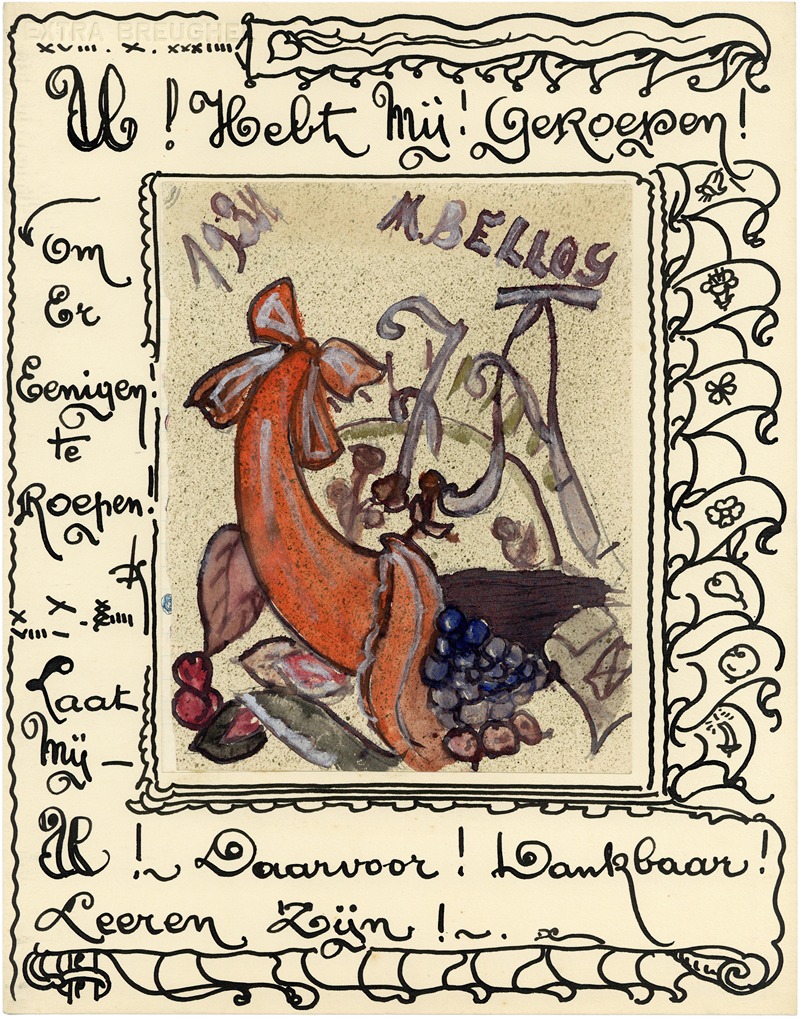 EXTRA BREUGHEL
XVIII. X. XXXIIII
U! Hebt Mij! Geroepen!
om
Er
Eenigen!
te
Roepen!
XVIII – X – XXXIIII
Laat
Mij –
U! ~ Daarvoor! Dankbaar!
Leeren Zijn! ~ .
1934
M. BELLOY